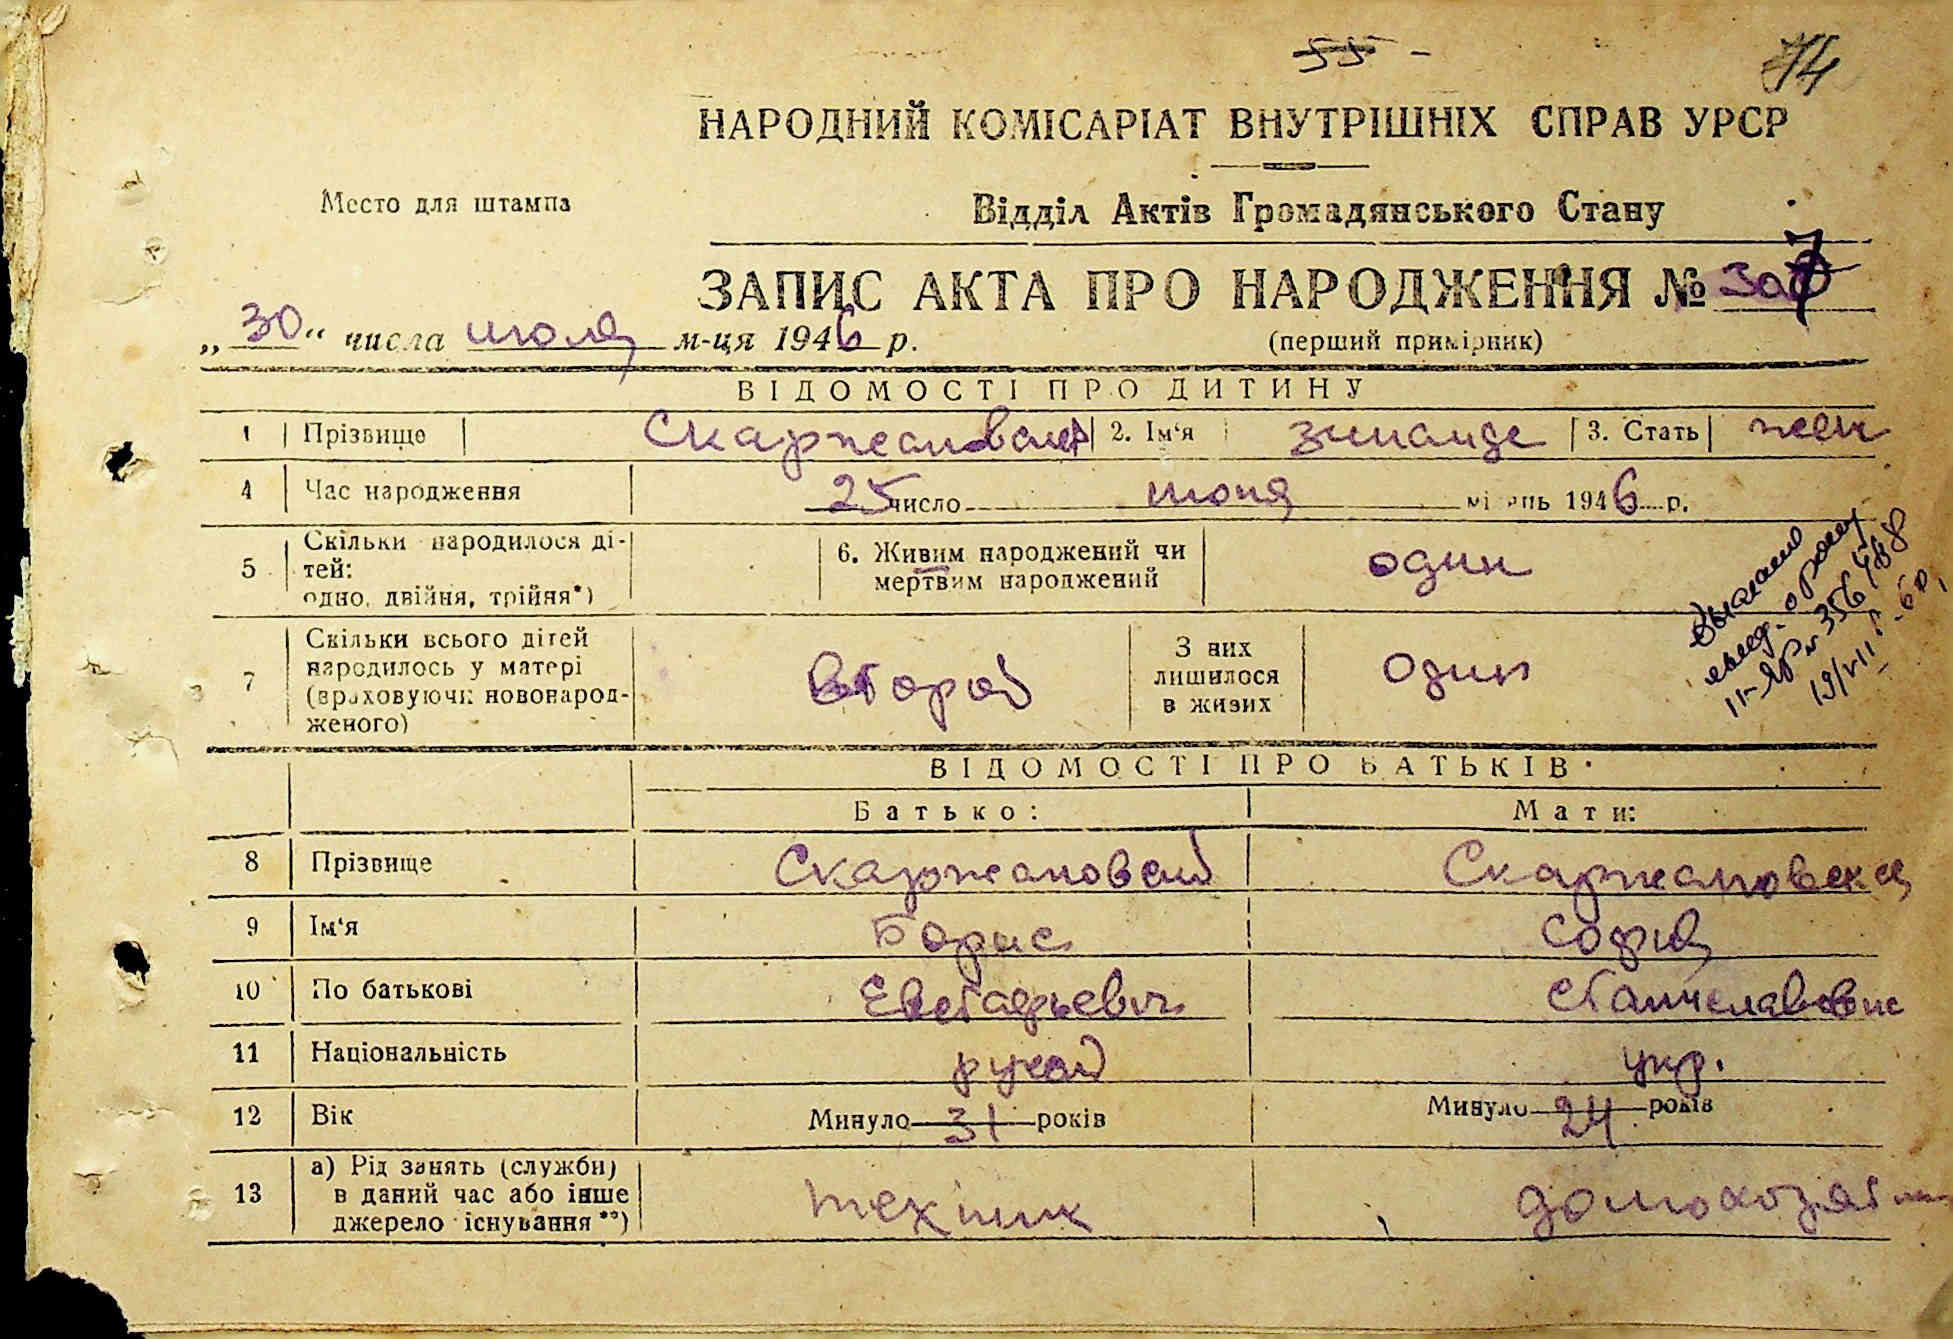 55 -
74
НАРОДНИЙ КОМІСАРІАТ ВНУТРІШНІХ СПРАВ УРСР
Место для штампа
Відділ Актів Громадянського Стану
ЗАПИС АКТА ПРО НАРОДЖЕННЯ № 307
„30“ числа июля м-ця 1946 р.
(перший примірник)
ВІДОМОСТІ ПРО ДИТИНУ
1 Прізвище Скаржановская 2. Ім‘я Зинаида 3. Стать жен
4 Час народження 25 число июня місяць 1946 р.
5 Скільки народилося ді-
тей:
одно, двійня, трійня*)
6. Живим народжений чи
мертвим народжений
один
Выдано
повд. о рожд
II-ЯР № 356488
19/VII 60.
7 Скільки всього дітей
народилось у матері
(враховуючи новонарод-
женого)
второй
З них
лишилося
в живих
один
ВІДОМОСТІ ПРО БАТЬКІВ
Батько: Мати:
8 Прізвище Скаржановский Скаржановская
9 Ім‘я Борис София
10 По батькові Евстафьевич Станиславовна
11 Національність руский укр.
12 Вік Минуло 31 років Минуло 24 років
13 а) Рід занять (служби)
в даний час або інше
джерело існування**)
техник домохозяйка